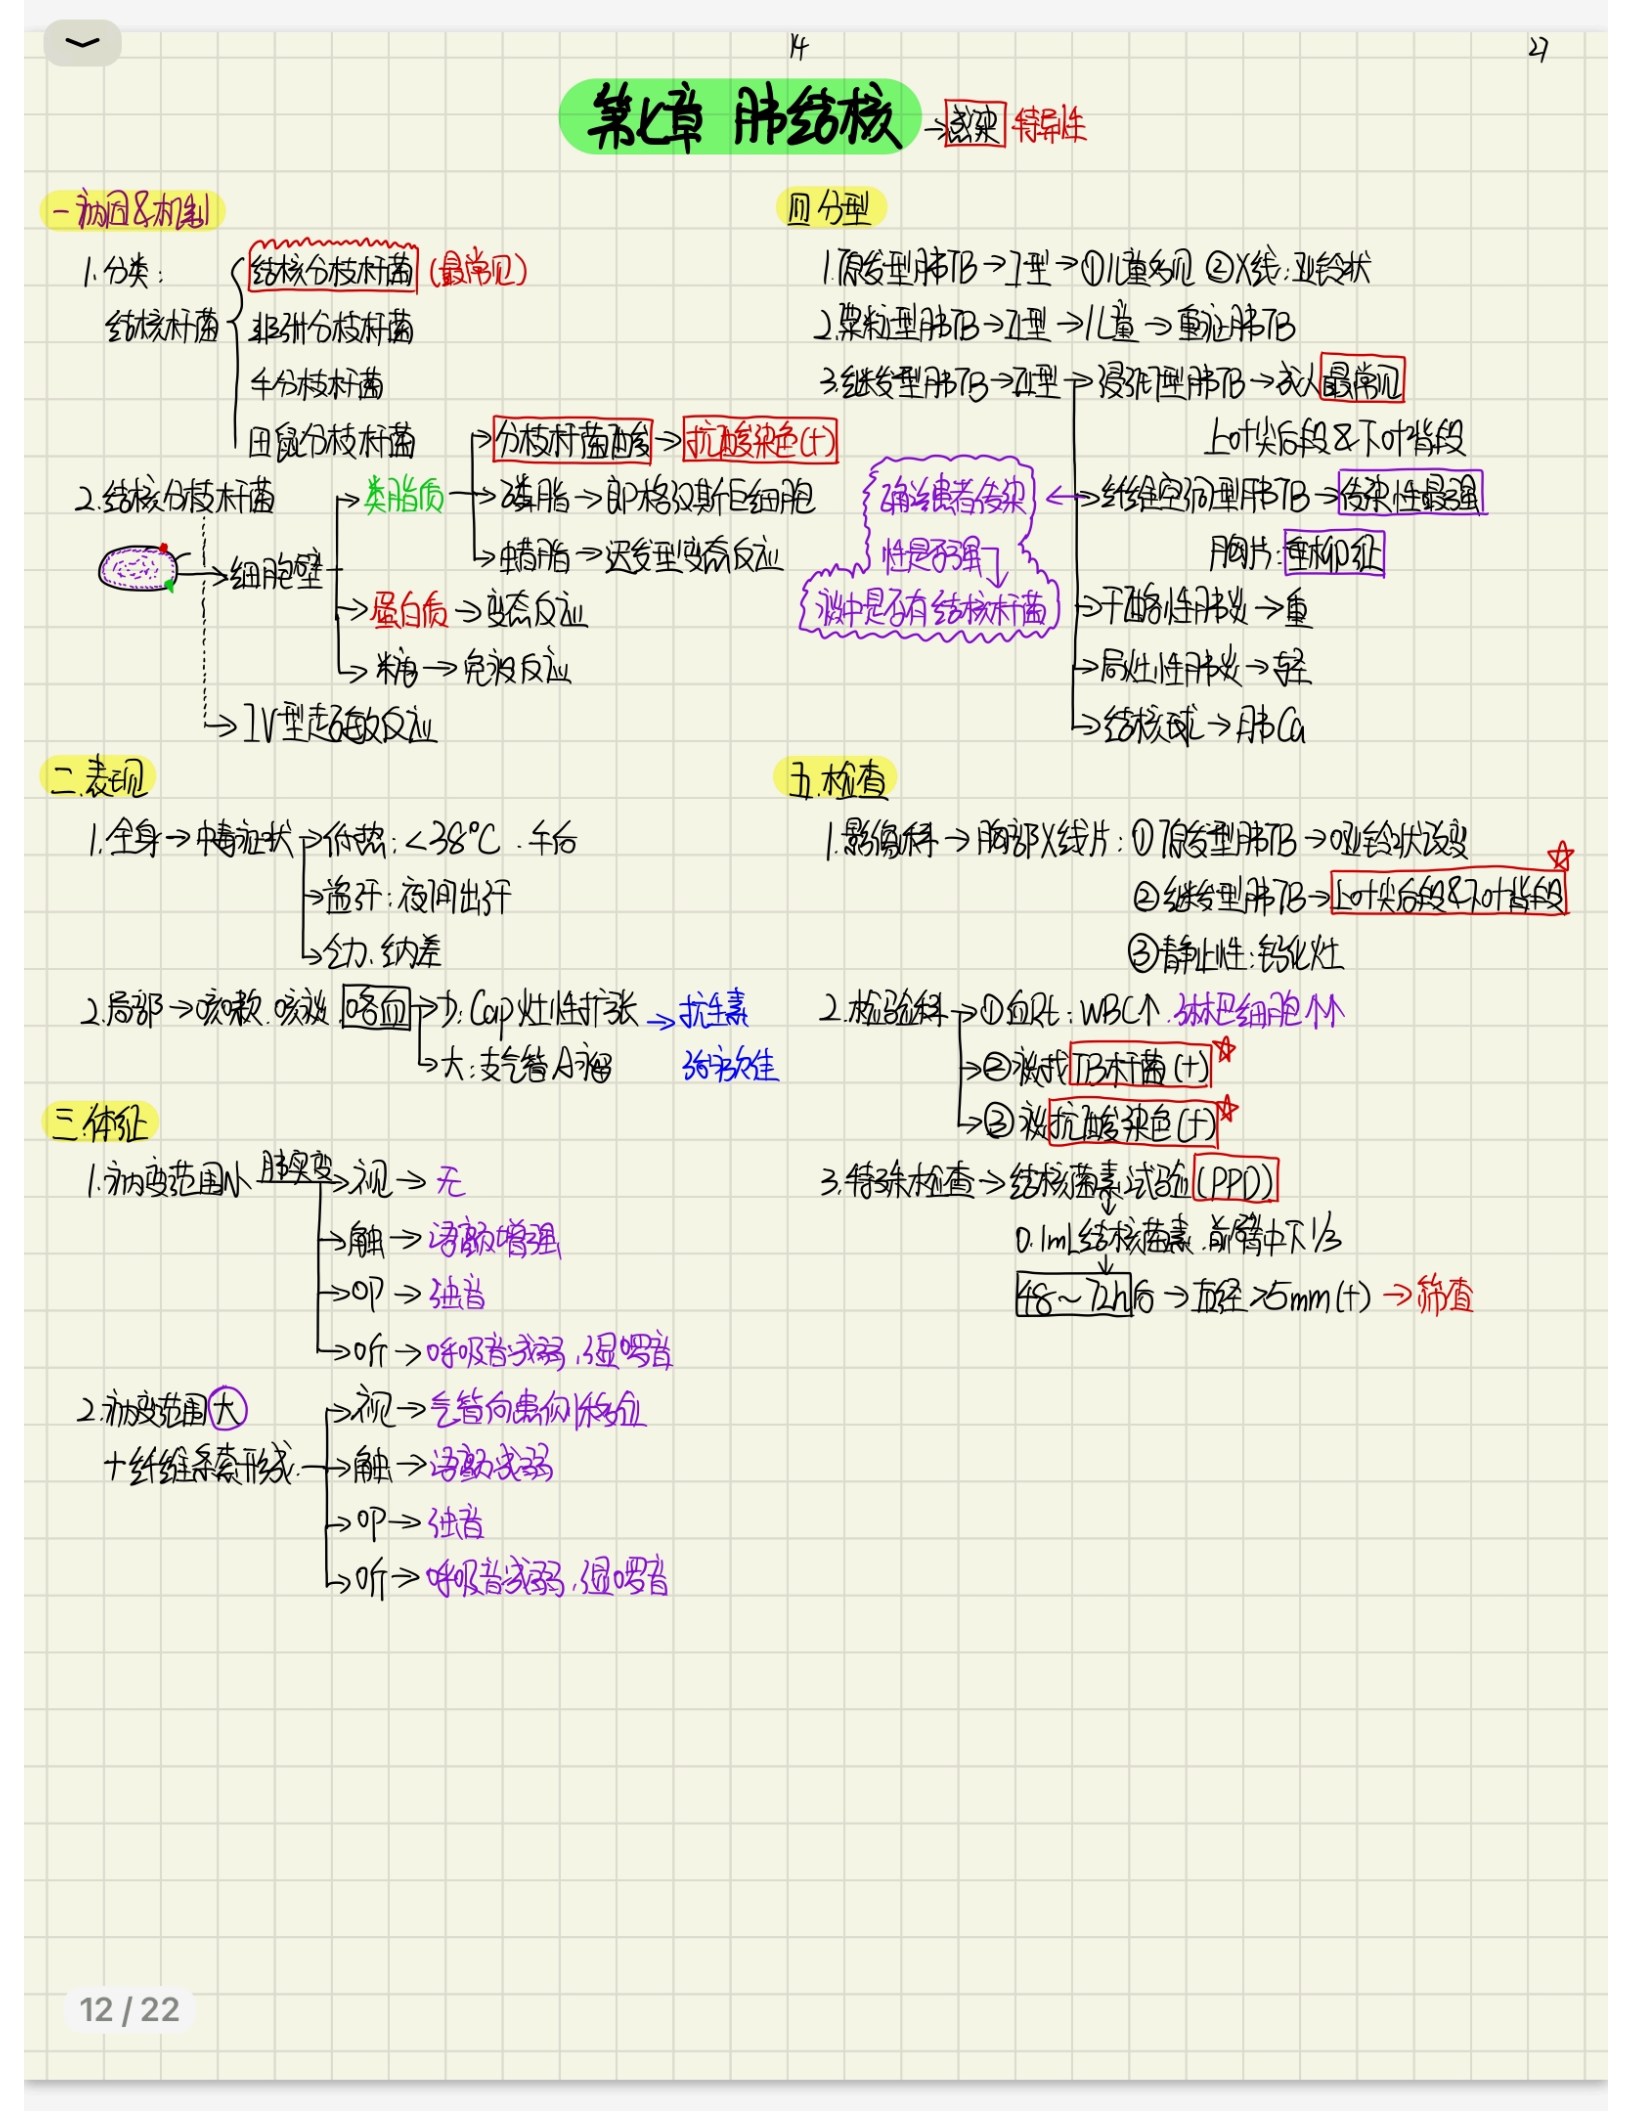 14
27
第七章 肺结核 →感染 特异性
一 病因&机制
1. 分类:
结核杆菌
结核分枝杆菌 (最常见)
非洲分枝杆菌
牛分枝杆菌
田鼠分枝杆菌
2. 结核分枝杆菌
→细胞壁
→类脂质
→分枝杆菌酸→抗酸染色(+)
→磷脂→郎格汉斯巨细胞
→蜡脂→迟发型变态反应
→蛋白质→变态反应
→多糖→免疫反应
→IV型超敏反应
二.表现
1.全身→中毒症状→低热:<38℃.午后
→盗汗:夜间出汗
→乏力.纳差
2.局部→咳嗽.咳痰.咯血→少:Cap灶性扩张→抗生素
→大:支气管A瘤
治疗欠佳
三.体征
1.病变范围小 肺实变→视→无
→触→语颤增强
→叩→浊音
→听→呼吸音减弱,湿啰音
2.病变范围大
+纤维条索形成
→视→气管向患侧移位
→触→语颤减弱
→叩→浊音
→听→呼吸音减弱,湿啰音
四 分型
1.原发型肺TB→I型→①儿童多见 ②X线:哑铃状
2.粟粒型肺TB→II型→儿童→重症肺TB
3.继发型肺TB→III型→浸润型肺TB→成人最常见
上叶尖后段&下叶背段
→纤维空洞型肺TB→传染性最强
胸片:垂柳征
确诊患者传染
性是否强
痰中是否有结核杆菌
→干酪性肺炎→重
→局灶性肺炎→轻
→结核球→肺Ca
五.检查
1.影像科→胸部X线片:①原发型肺TB→哑铃状改变
②继发型肺TB→上叶尖后段&下叶背段
③静止性:钙化灶
2.检验科→①血Rt:WBC↑.淋巴细胞↑↑
→②痰找TB杆菌(+)
→③痰抗酸染色(+)
3.特殊检查→结核菌素试验(PPD)
0.1mL结核菌素.前臂中下1/3
48~72h后→直径>5mm(+)→筛查
12 / 22